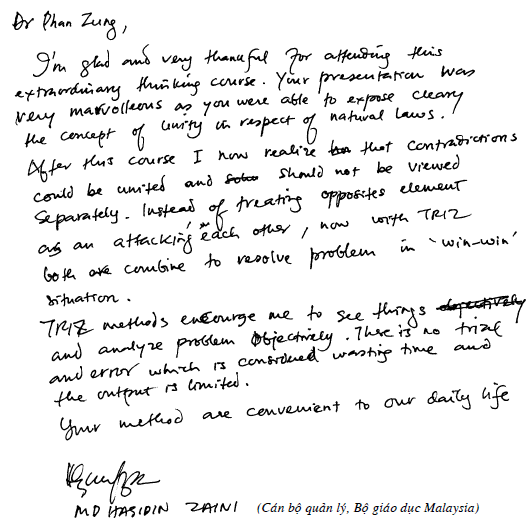 Dr Phan Zung,
I'm glad and very thankful for attending this
extraordinary thinking course. Your presentation was
very marvolleous as you were able to expose cleary
the concept of unity in respect of natural laws.
After this course I now realize that contradictions
could be united and should not be viewed
separately. Instead of treating opposites element
as an attacking each other, now with TRIZ
both are combine to resolve problem in 'win-win'
situation.
TRIZ methods encourge me to see things objectively
and analyze problem objectively. There is no trial
and error which is considered wasting time and
the output is limited.
Your method are convenient to our daily life
MD HASIDIN ZAINI (Cán bộ quản lý, Bộ giáo dục Malaysia)